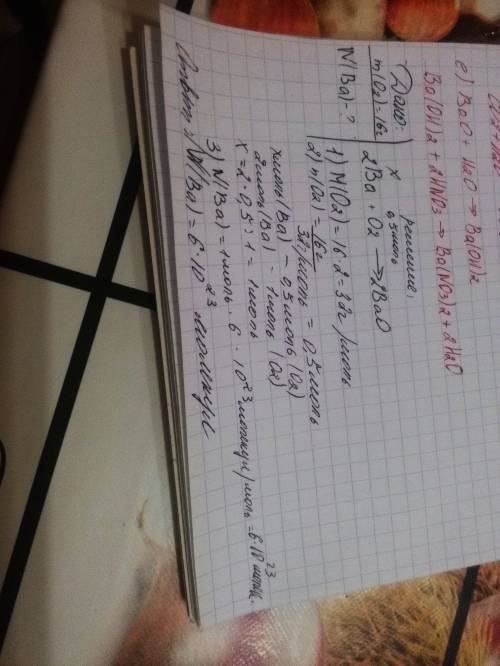 е) BaO + H2O → Ba(OH)2
Ba(OH)2 + 2HNO3 → Ba(NO3)2 + 2H2O
Дано:
m(O2)=16г
N(Ba)-?
решение:
x 0,5моль
2Ba + O2 → 2BaO
1) M(O2)=16·2=32г/моль
2) n(O2)= 16г / 32г/моль = 0,5моль
xмоль(Ba) – 0,5моль (O2)
2моль(Ba) – 1моль (O2)
x=2·0,5:1=1моль
3) N(Ba)=1моль·6·10²³ молекул/моль=6·10²³ молек.
Ответ: N(Ba)=6·10²³ молекул